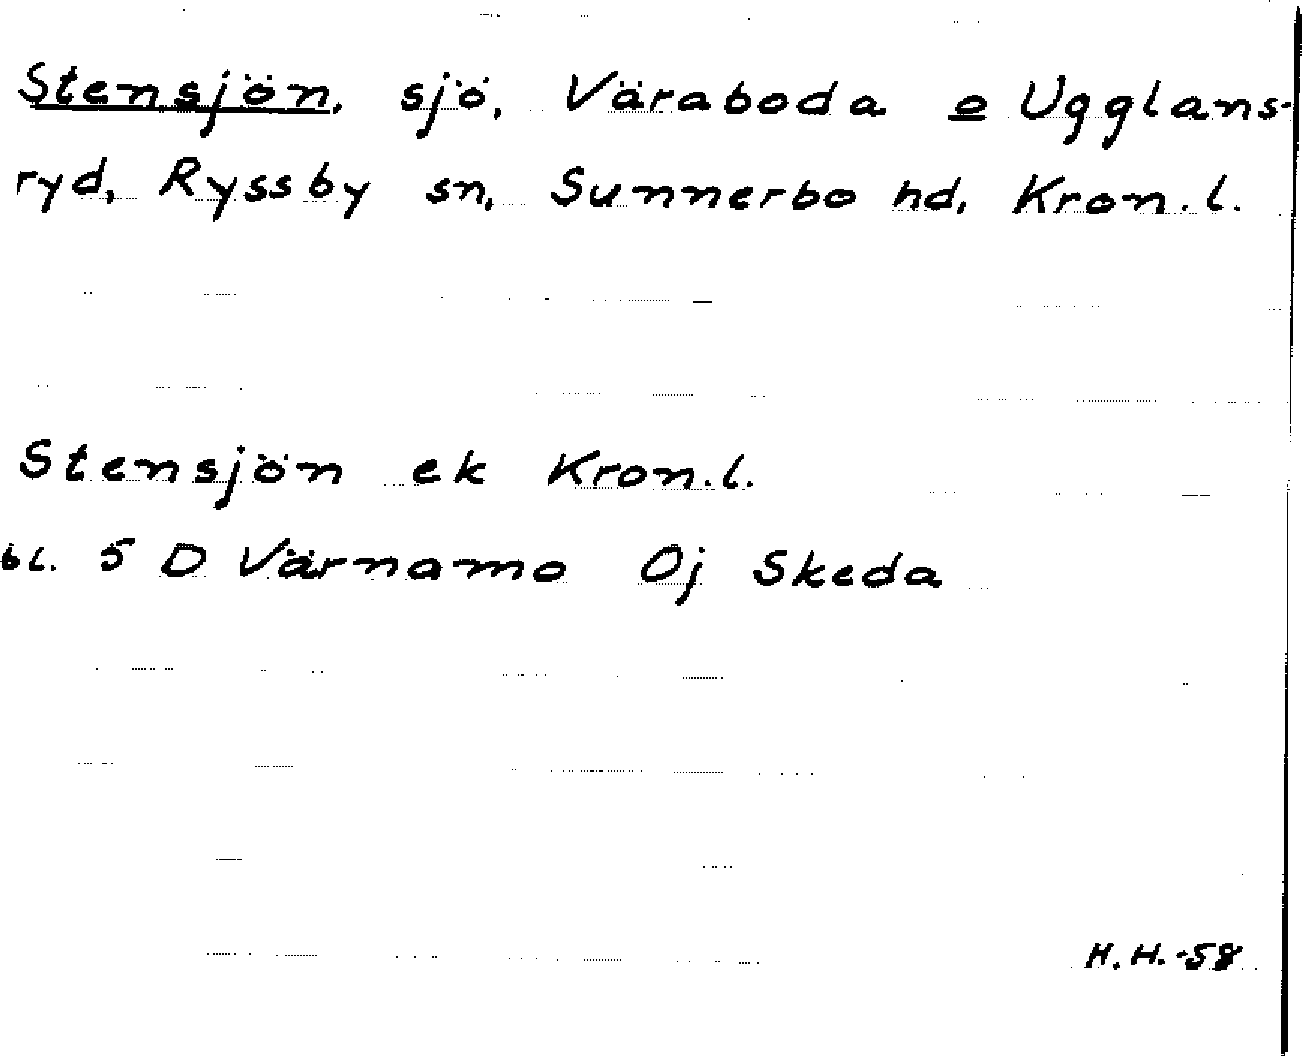 Stensjön, sjö, Väraboda o Ugglans-
ryd, Ryssby sn, Sunnerbo hd, Kron.l.
Stensjön ek Kron.l.
bl. 5 D Värnamo Oj Skeda
H.H.-58